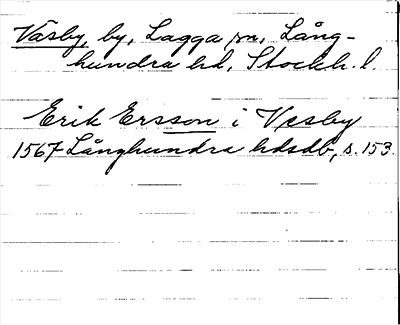 Väsby, by, Lagga sn, Lång-
hundra hd, Stockh. l.
Erik Ersson i Vesby
1567 Långhundra hdsdb, s. 153